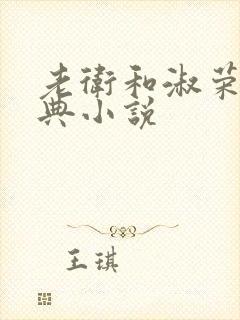 老衛和淑荣
典小説
王琪